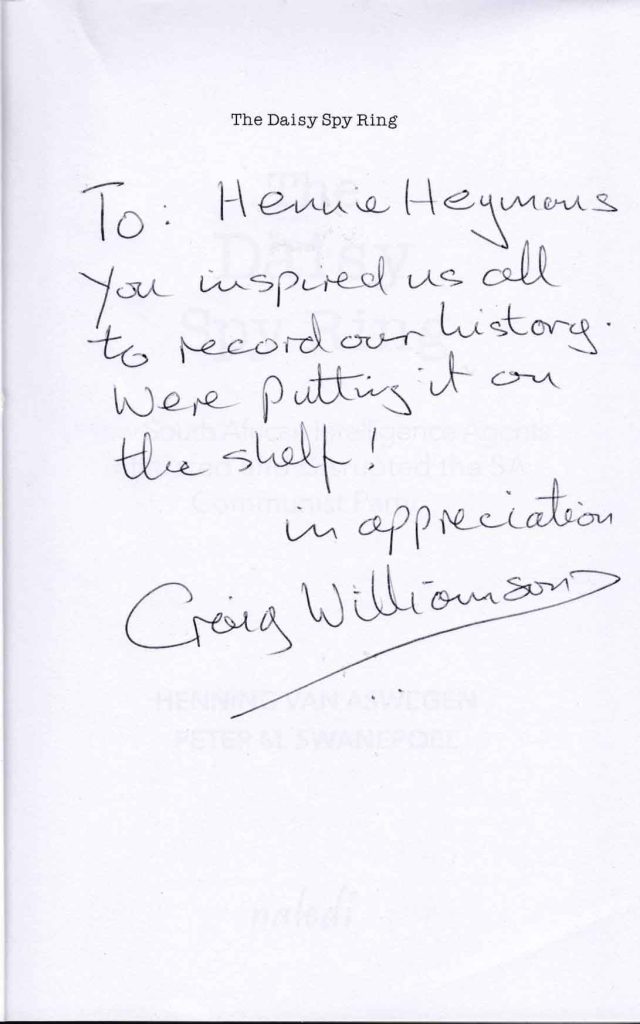 The Daisy Spy Ring
To: Hennie Heymans
You inspired us all
to record our history.
Were putting it on
the shelf!
in appreciation
Craig Williamson
The
Daisy
Spy Ring
South African Intelligence Agents
and Disrupted the SA
Communist Party
HENNING VAN ASWEGEN
PETER M. SWANEPOEL
naledi